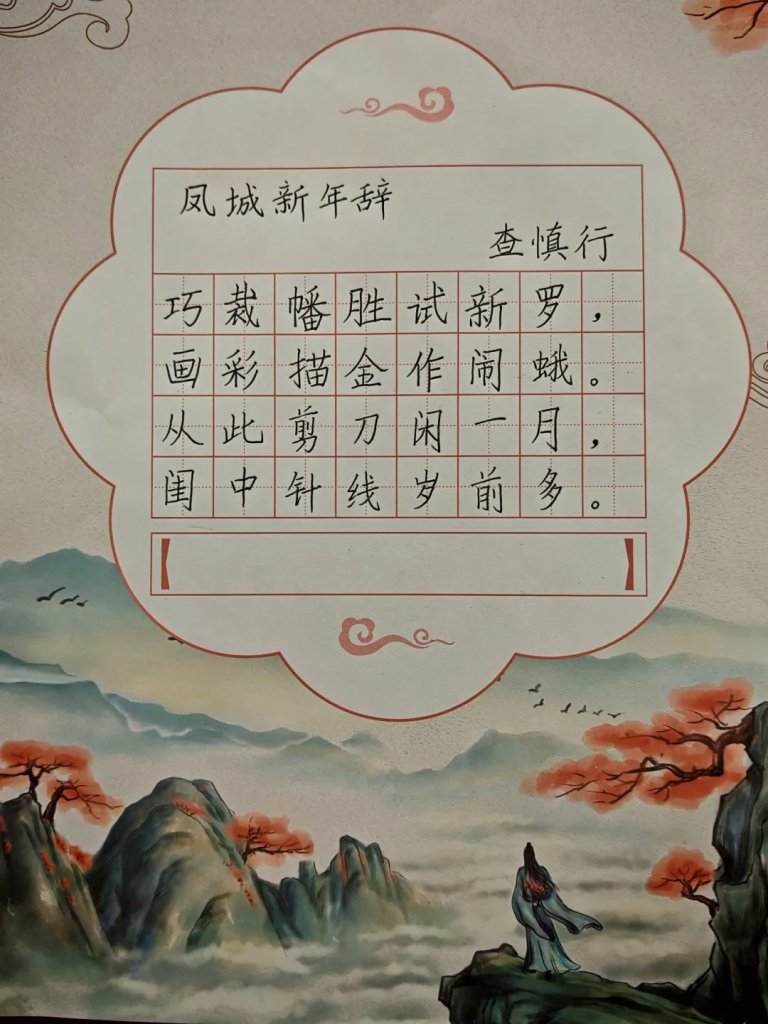 凤城新年辞
查慎行
巧裁幡胜试新罗，
画彩描金作闹蛾。
从此剪刀闲一月，
闺中针线岁前多。